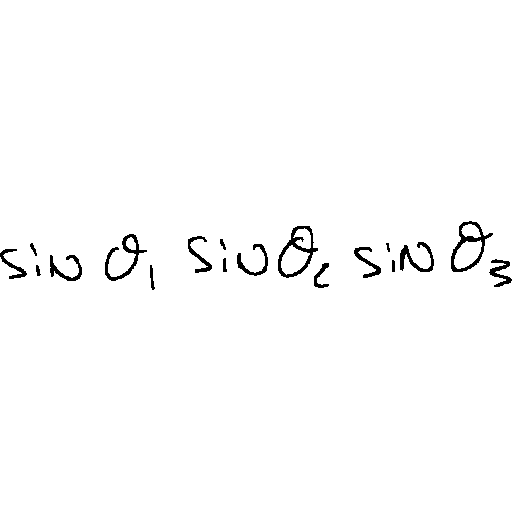 sin θ₁ sin θ₂ sin θ₃